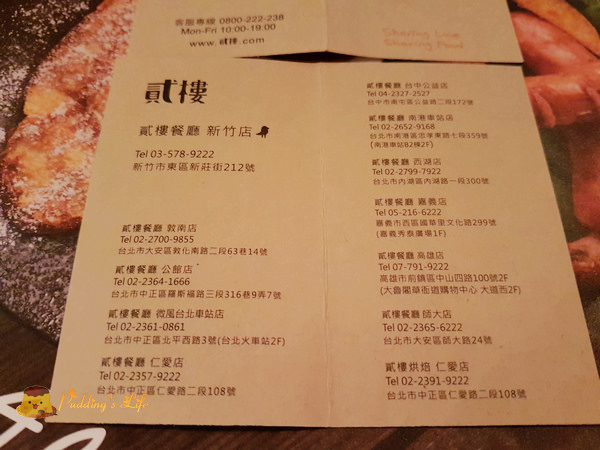 客服專線 0800-222-238
Mon-Fri 10:00-19:00
www.貳樓.com
Sharing Love
Sharing Food
貳樓
貳樓餐廳 新竹店
Tel 03-578-9222
新竹市東區新莊街212號
貳樓餐廳 敦南店
Tel 02-2700-9855
台北市大安區敦化南路二段63巷14號
貳樓餐廳 公館店
Tel 02-2364-1666
台北市中正區羅斯福路三段316巷9弄7號
貳樓餐廳 微風台北車站店
Tel 02-2361-0861
台北市中正區北平西路3號(台北火車站2F)
貳樓餐廳 仁愛店
Tel 02-2357-9222
台北市中正區仁愛路二段108號
貳樓餐廳 台中公益店
Tel 04-2327-2527
台中市南屯區公益路二段172號
貳樓餐廳 南港車站店
Tel 02-2652-9168
台北市南港區忠孝東路七段359號
(南港車站B2棟2F)
貳樓餐廳 西湖店
Tel 02-2799-7922
台北市內湖區內湖路一段300號
貳樓餐廳 嘉義店
Tel 05-216-6222
嘉義市西區國華里文化路299號
(嘉義秀泰廣場1F)
貳樓餐廳 高雄店
Tel 07-791-9222
高雄市前鎮區中山四路100號2F
(大魯閣草衙道購物中心 大道西2F)
貳樓餐廳 師大店
Tel 02-2365-6222
台北市大安區師大路24號
貳樓烘焙 仁愛店
Tel 02-2391-9222
台北市中正區仁愛路二段108號
Pudding's Life